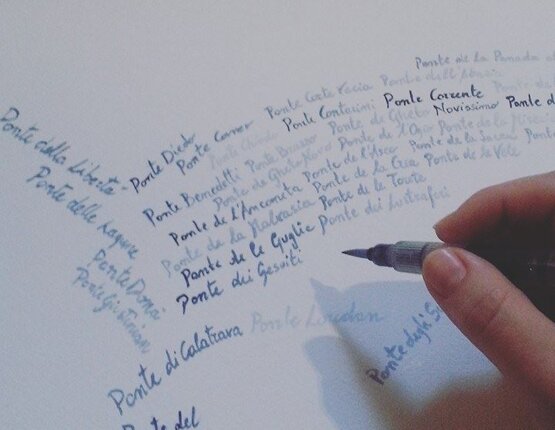 Ponte de la Panada
Ponte Corte Vecia Ponte dell'Abazia
Ponte Diedo Ponte Coner Ponte Contarini Ponte Corrente
Ponte della Libertà
Ponte Benedetti Ponte Brazzo Ponte de Gheto Novissimo Ponte d
Ponte delle Lagune Ponte de Gheto Novo Ponte de l'Ogio Ponte de la
Ponte de l'Anconeta Ponte de l'Aseo Ponte de la Sacca
Ponte de la Malvasia Ponte de la Crea Ponte de le Vele
Ponte Donà Ponte de le Guglie Ponte de le Torete
Ponte dei Gesuiti Ponte dei Lustraferi
Ponte di Calatrava Ponte London
Ponte degli S
Ponte del